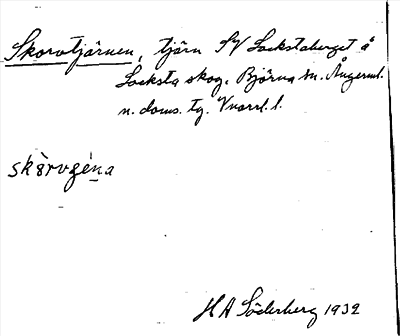 Skorvtjärnen, tjärn SV Lockstaberget å
Locksta skog. Björna sn. Ångerml.
n. doms. tg. Vnorrl. l.
skòrvɕǽna
H A Söderberg 1932